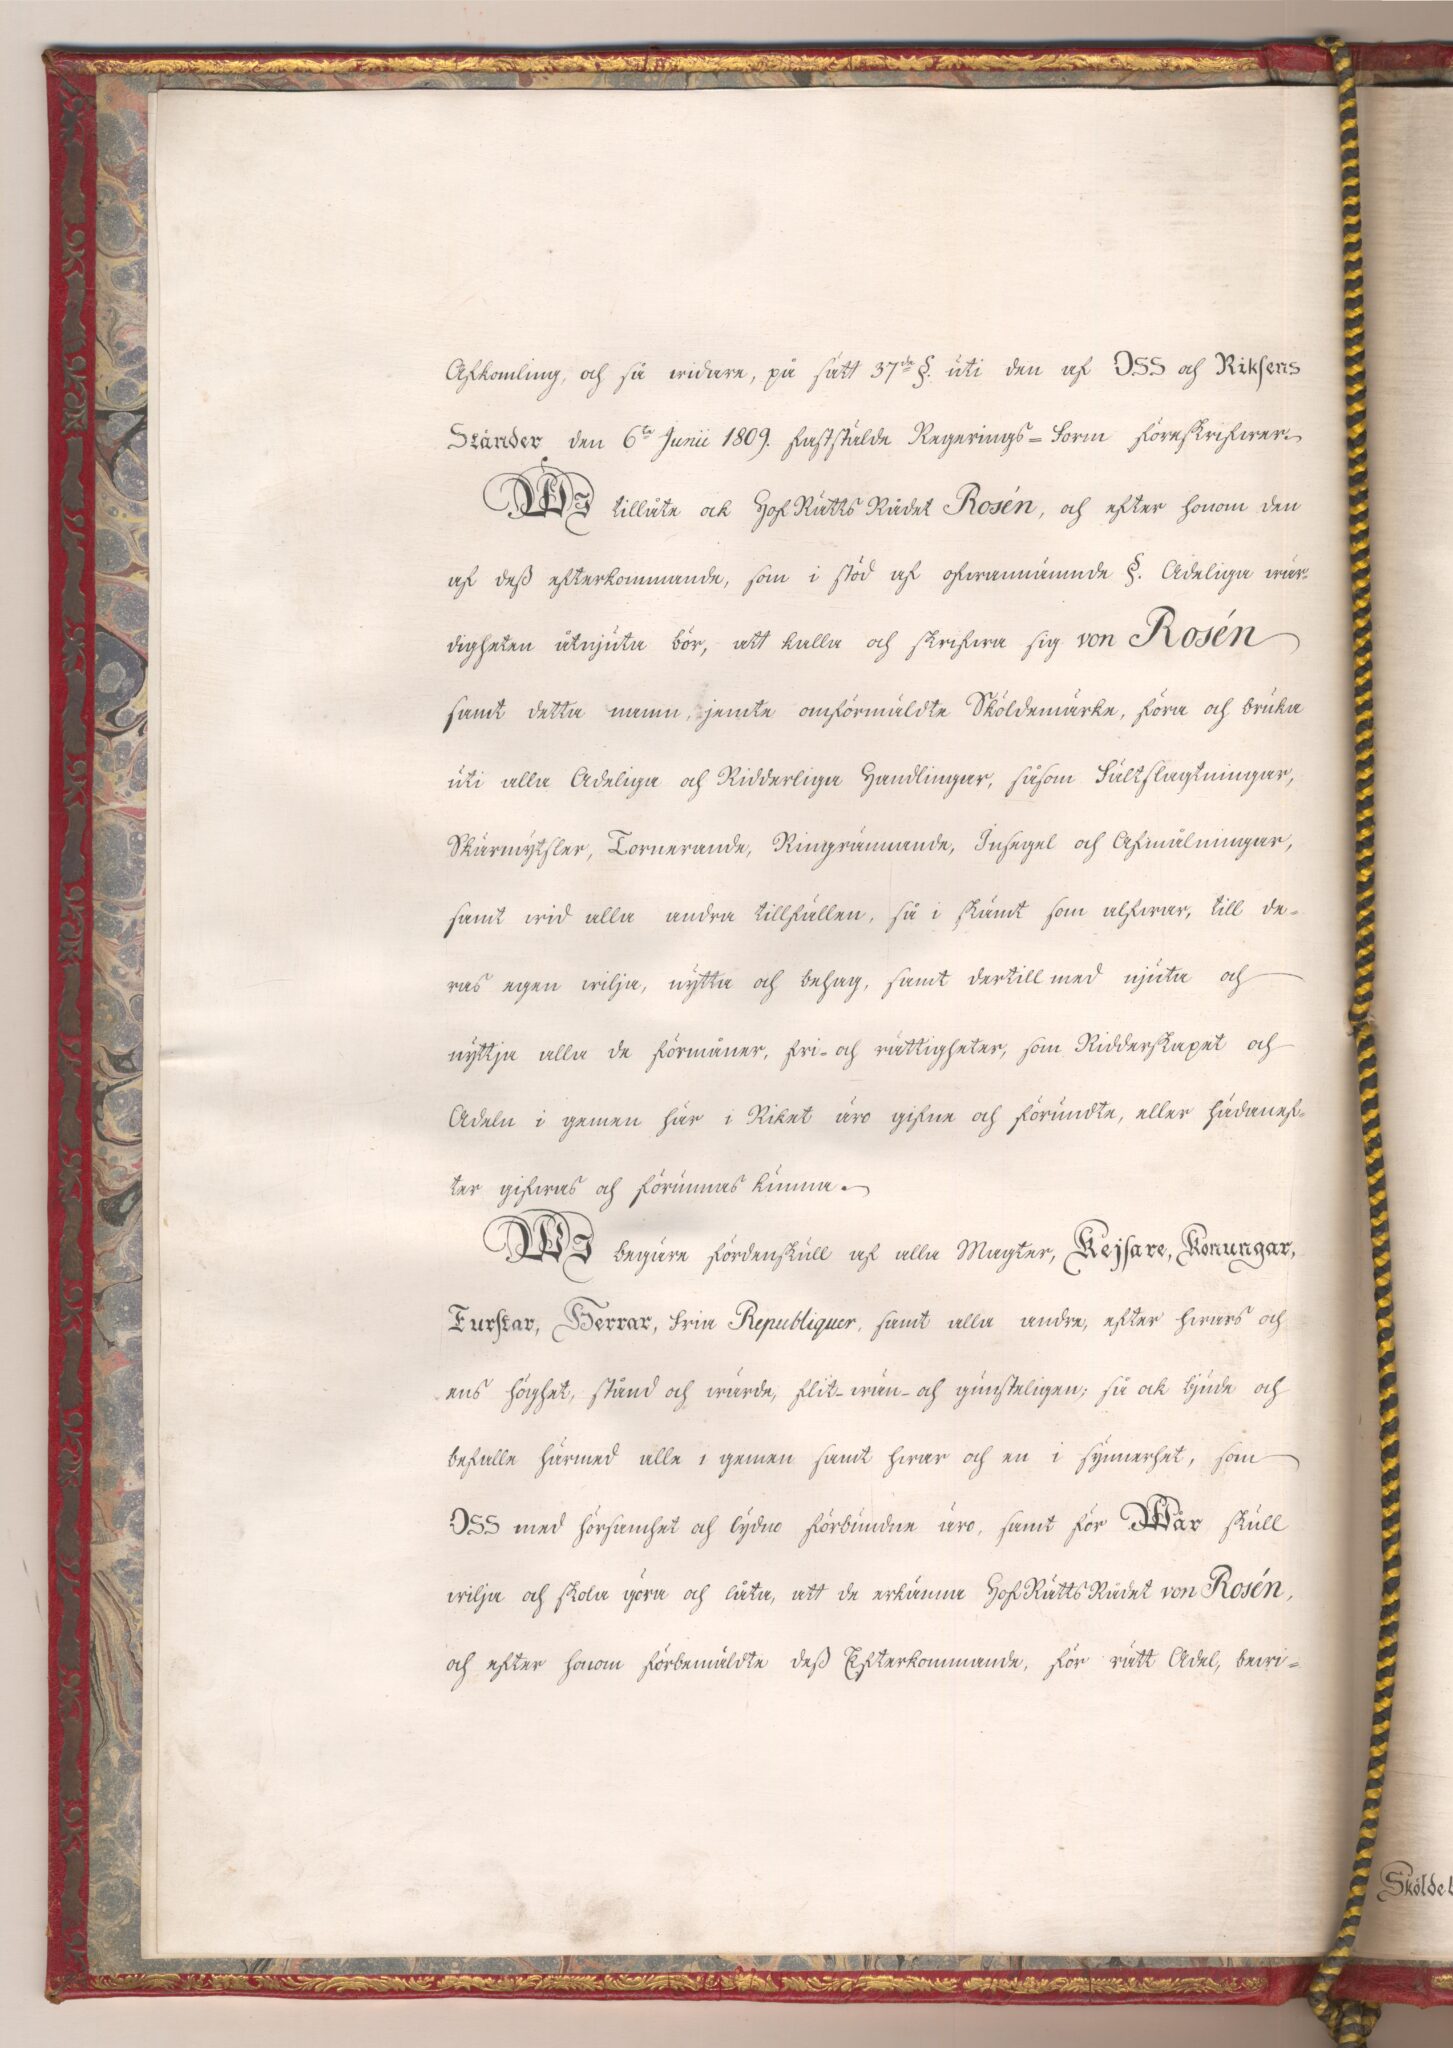 Afkomling, och så widare, på sätt 37de §. uti den af OSS och Riksens
Ständer den 6te Junii 1809. faststälde Regerings=Form föreskrifwer.
WJ tillåte ok HofRättsRådet Rosén, och efter honom den
af deß efterkommande, som i stöd af ofwannämnde §. Adeliga wär-
digheten åtnjuta bör, att kalla och skrifwa sig von Rosén
samt detta namn, jemte omförmäldte Sköldemärke, föra och bruka
uti alla Adeliga och Ridderliga Handlingar, såsom Fältslagtningar,
Skärmytsler, Tornerande, Ringrännande, Insegel och Afmålningar,
samt wid alla andra tillfällen, så i skämt som alfwar, till de-
ras egen wilja, nytta och behag, samt dertill med njuta och
nyttja alla de förmåner, fri- och rättigheter, som Ridderskapet och
Adeln i gemen här i Riket äro gifne och förundte, eller hädanef-
ter gifwas och förunnas kunna.
WJ begäre fördenskull af alla Magter, Kejsare, Konungar,
Furstar, Herrar, Fria Republiquer, samt alla andre, efter hwars och
ens höghet, stånd och wärde, flit- wän- och gunsteligen; så ok bjude och
befalle härmed alle i gemen samt hwar och en i synnerhet, som
OSS med hörsamhet och lydno förbundne äro, samt för Wår skull
wilja och skola göra och låta, att de erkänna HofRättsRådet von Rosén,
och efter honom förbemäldte deß Efterkommande, för rätt Adel, bewi-